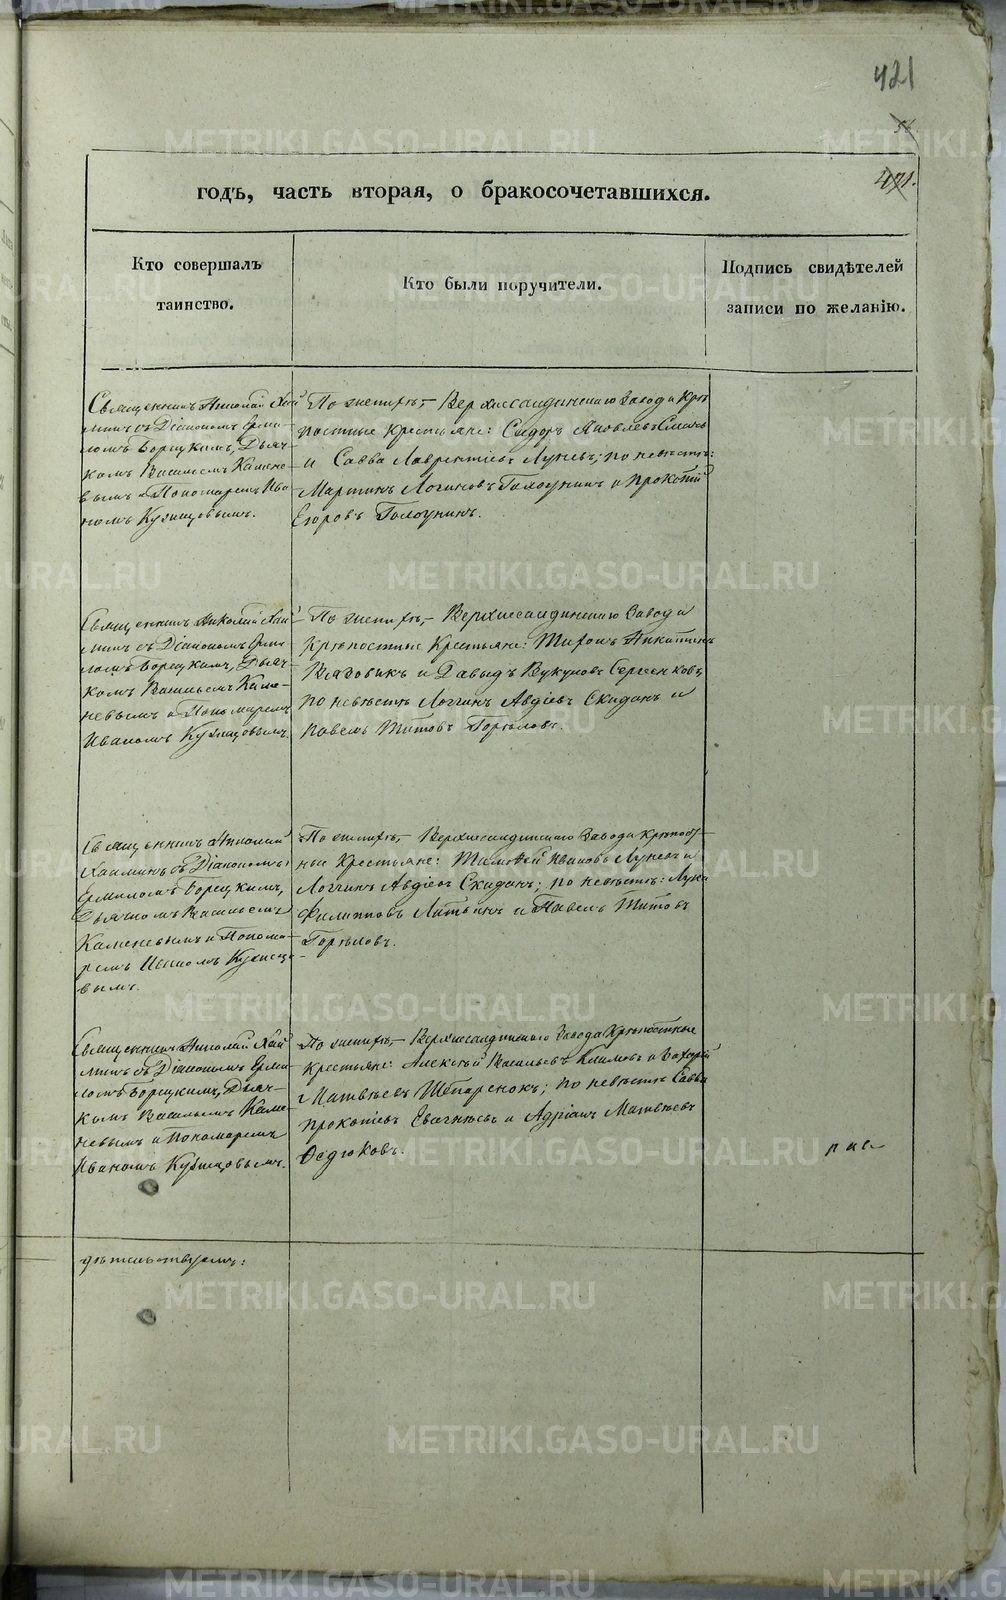 421
56
471.
годъ, часть вторая, о бракосочетавшихся.
Кто совершалъ
таинство.
Кто были поручители.
Подпись свидѣтелей
записи по желанію.
Священникъ Николай Хай
минъ съ Діакономъ Ерми
ломъ Борецкимъ, Дьяч
комъ Васильемъ Камене
вымъ и Пономаремъ Ива
номъ Кузнецовымъ.
По жениху, Верхнесалдинскаго Завода Крѣ
постные крестьяне: Сидоръ Яковлевъ
и Савва Лаврентіевъ Луневъ; по невѣстѣ:
Мартинъ Логиновъ Голоунинъ и Прокопій
Егоровъ Голоунинъ.
Священникъ Николай Хай
минъ съ Діакономъ Ерми
ломъ Борецкимъ, Дьяч
комъ Васильемъ Каме-
невымъ и Пономаремъ
Иваномъ Кузнецовымъ.
По жениху, Верхнесалдинскаго Завода
Крѣпостные Крестьяне: Миронъ Никитинъ
и Давыдъ Вукуловъ Сергенковъ,
по невѣстѣ Логгинъ Авдіевъ Скиданъ и
Павелъ Титовъ Горѣловъ.
Священникъ Николай
Хайминъ съ Діакономъ
Ермиломъ Борецкимъ,
Дьячкомъ Васильемъ
Каменевымъ и Понома-
ремъ Иваномъ Кузнецо-
вымъ.
По жениху, Верхнесалдинскаго Завода Крѣпост-
ные Крестьяне: Тимофей Ивановъ Луневъ и
Логгинъ Авдіевъ Скиданъ; по невѣстѣ: Лука
Филипповъ Литвинъ и Павелъ Титовъ
Горѣловъ.
Священникъ Николай Хай
минъ съ Діакономъ Ерми
ломъ Борецкимъ, Дьяч-
комъ Васильемъ Каме-
невымъ и Пономаремъ
Иваномъ Кузнецовымъ.
По жениху, Верхнесалдинскаго Завода Крѣпостные
Крестьяне: Алексѣй Васильевъ Климовъ и Захарій
Матвѣевъ Шепаренокъ; по невѣстѣ Савва
Прокопіевъ Евагнѣевъ и Адріанъ Матвѣевъ
Федюковъ.